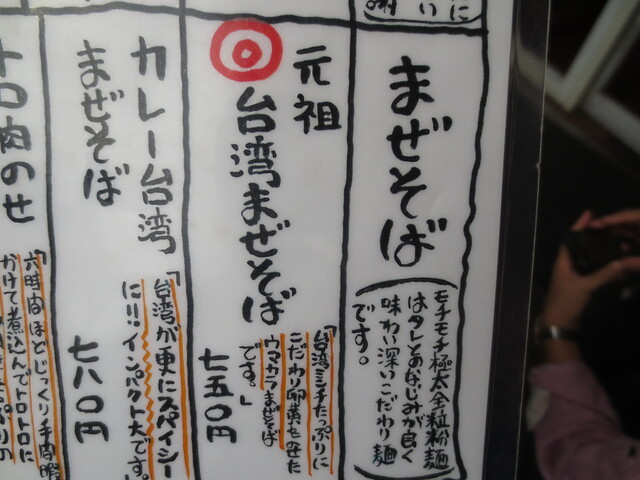 に
い
まぜそば
モチモチ極太全粒粉麺
はタレとのなじみが良く
味わい深いこだわり麺
です。
元祖
台湾まぜそば
「台湾ミンチたっぷりに
こだわり卵黄をのせた
ウマカラまぜそば
です。」
七五〇円
カレー台湾
まぜそば
「台湾が更にスパイシー
に!!インパクト大です。
七八〇円
トロ肉のせ
「六時間ほどじっくり手間暇
かけて煮込んでトロトロに